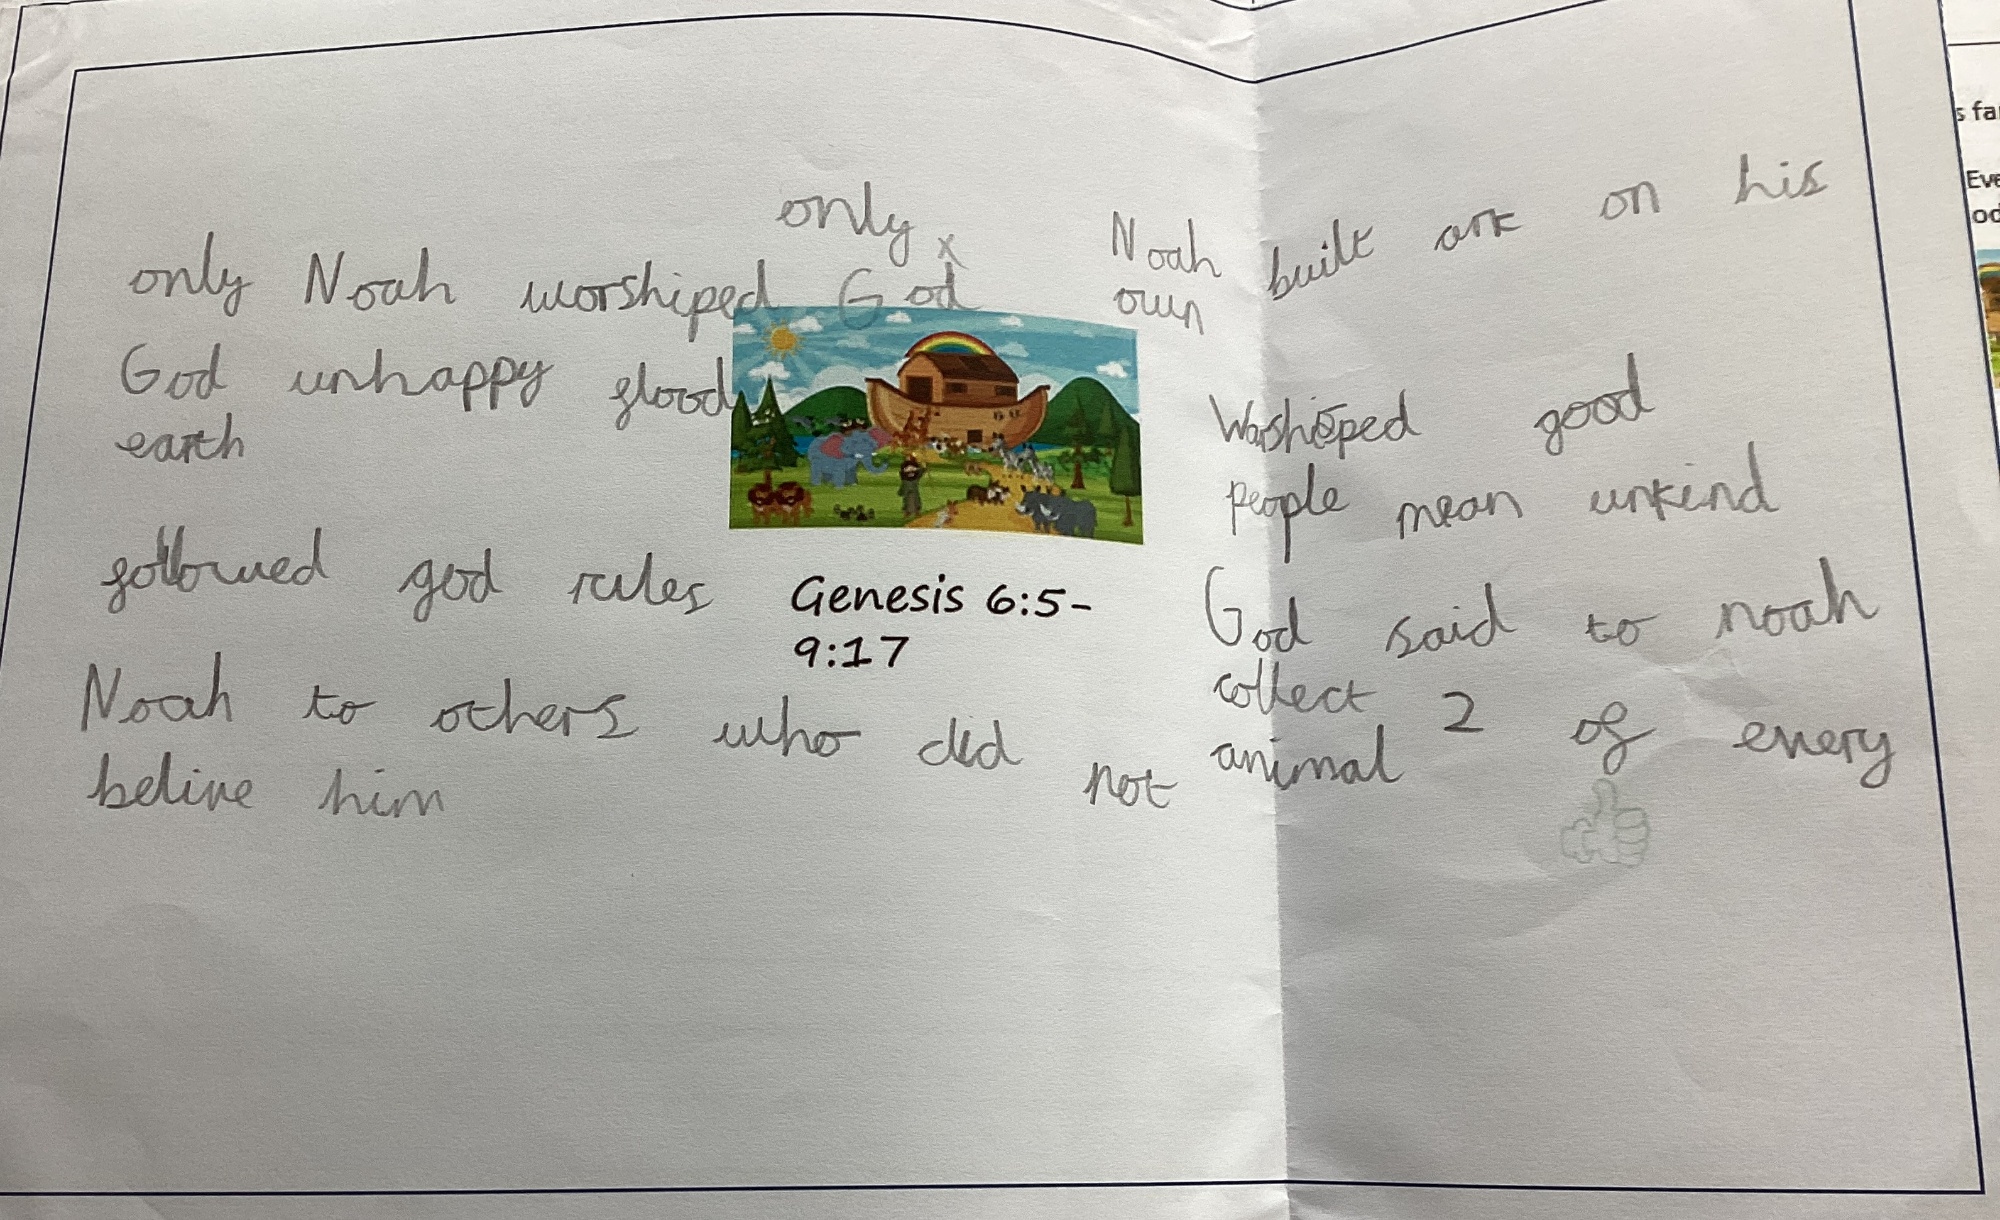 only
only Noah worshiped God
God unhappy flood
earth
followed god rules
Noah to others who did not
belive him
Genesis 6:5-
9:17
Noah built ark on his
own
Worshiped good
people mean unkind
God said to noah
collect 2 of every
animal
s fa
Eve
od